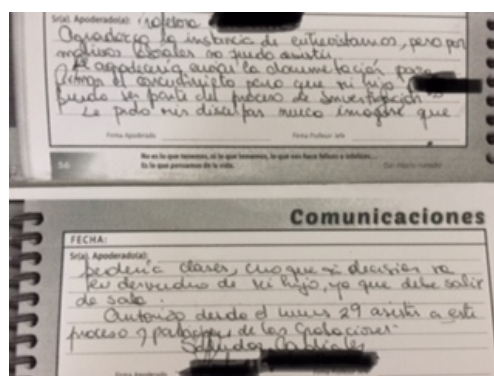 Sr(a). Apoderado(a): Profesora
Agradezco la instancia de entrevistarnos, pero por
motivos laborales no puedo asistir.
Le agradecería enviar la documentación para
firmar el consentimiento para que mi hijo
pueda ser parte del proceso de Investigación
Le pido mis disculpas nunca imaginé que
Firma Apoderado
Firma Profesor Jefe
50
No es lo que tenemos, ni lo que tememos, lo que nos hace felices o infelices...
Es lo que pensamos de la vida.
Comunicaciones
FECHA:
Sr(a). Apoderado(a):
perdería clases, creo que su decisión va
en desmedro de mi hijo, ya que debe salir
de sala.
Autorizo desde el lunes 29 asistir a este
proceso y participar de las Grabaciones.
Saludos Cordiales
Firma Apoderado